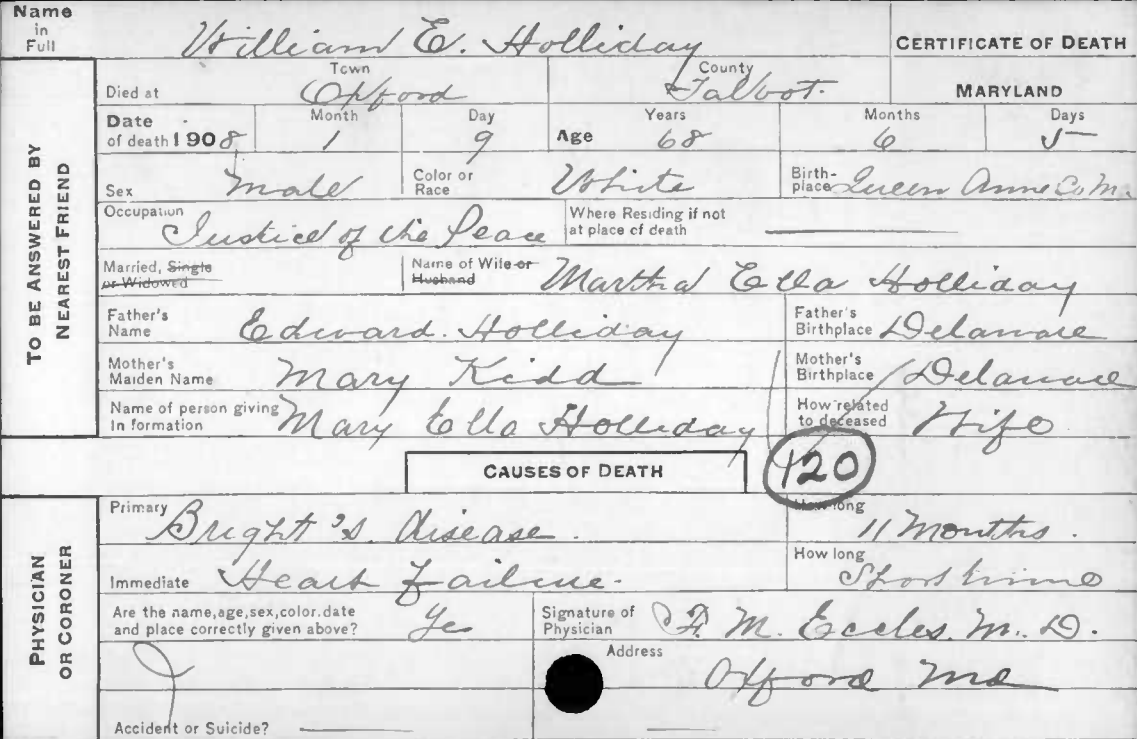 Name in Full William E. Holliday CERTIFICATE OF DEATH
TO BE ANSWERED BY NEAREST FRIEND
Died at Town Oxford County Talbot. MARYLAND
Date of death 1908 Month 1 Day 9 Age Years 68 Months 6 Days 5
Sex Male Color or Race White Birthplace Queen Anne Co M.
Occupation Justice of the Peace Where Residing if not at place of death
Married, Single or Widowed Name of Wife or Husband Martha Ella Holliday
Father's Name Edward. Holliday Father's Birthplace Delaware
Mother's Maiden Name Mary Kidd Mother's Birthplace Delaware
Name of person giving In formation Mary Ella Holliday How related to deceased Wife
CAUSES OF DEATH 120
PHYSICIAN OR CORONER
Primary Bright's disease. How long 11 Months.
Immediate Heart failure. How long Short time
Are the name, age, sex, color. date and place correctly given above? Yes Signature of Physician F. M. Eccles. M. D.
Address Oxford Md
Accident or Suicide?